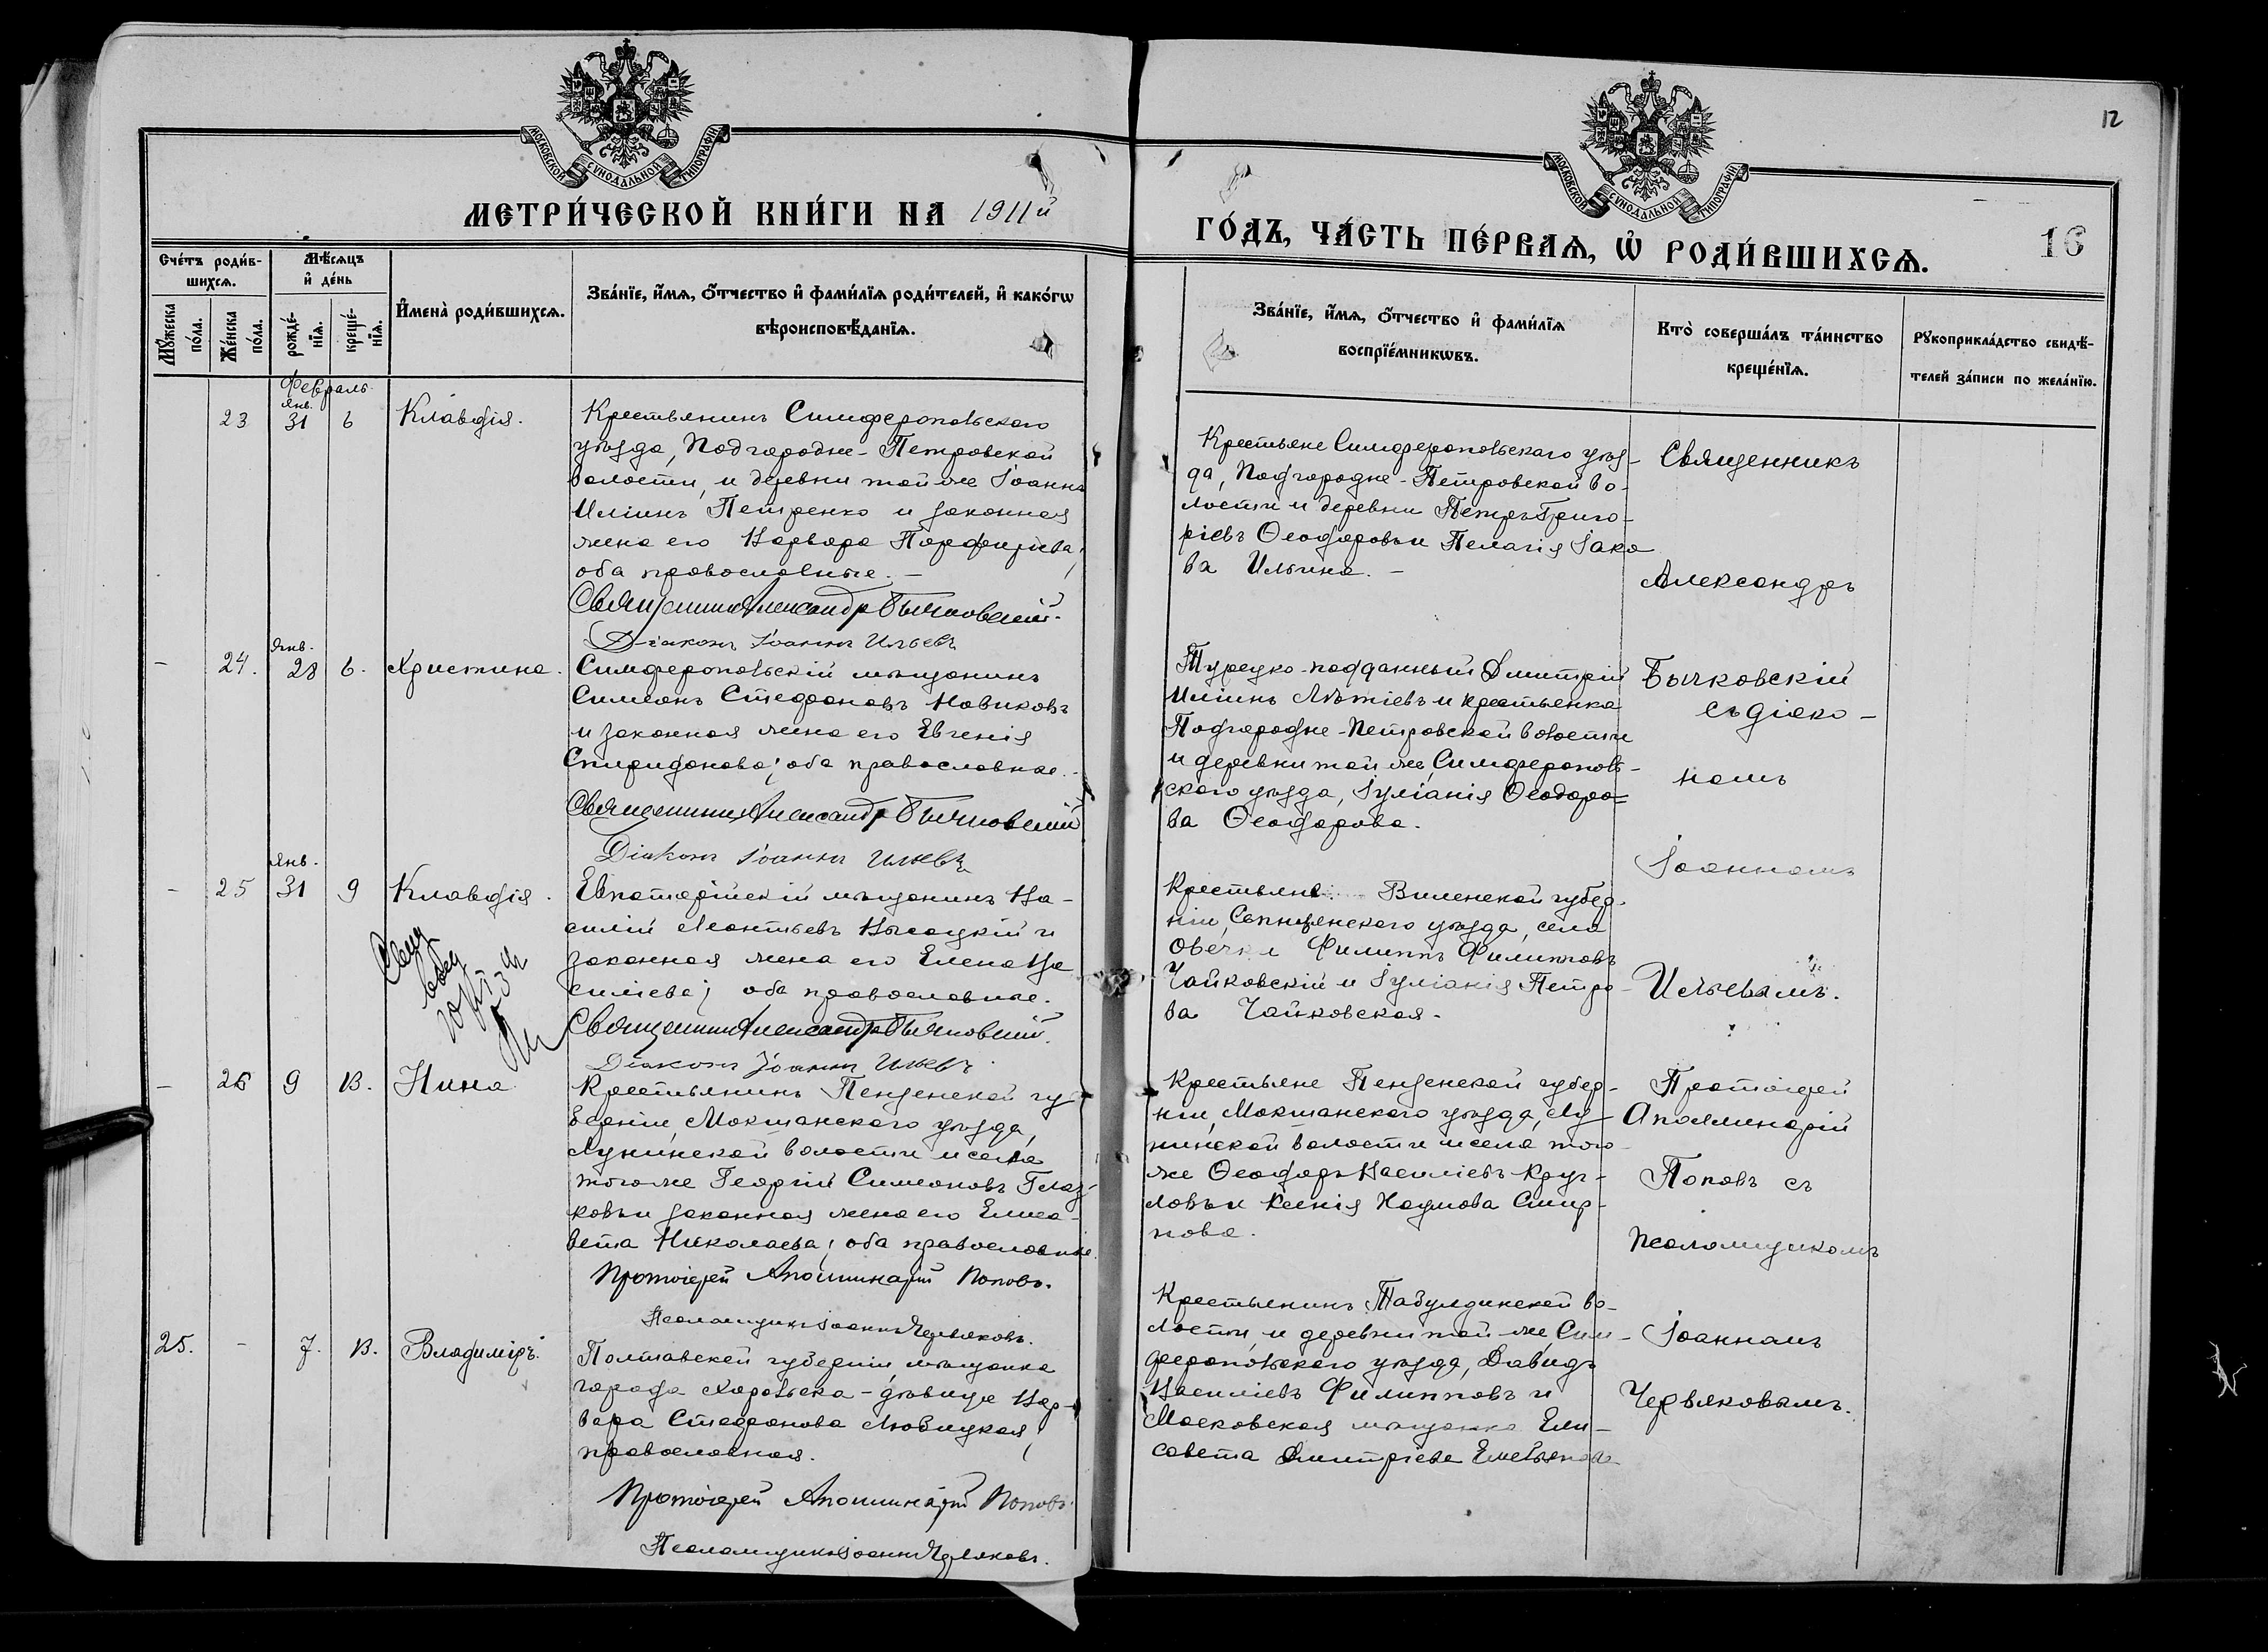 12
МОСКОВСКОЙ СѴНОДАЛЬНОЙ ТИПОГРАФІИ
МОСКОВСКОЙ СѴНОДАЛЬНОЙ ТИПОГРАФІИ
МЕТРИ́ЧЕСКОЙ КНИ́ГИ НА 1911й
ГО́ДЪ, ЧА́СТЬ ПЕ́РВАѦ, Ѡ РОДИ́ВШИХСѦ.
16
Сче́тъ роди́в-
шихсѧ.
Мꙋ́жеска по́ла.
Же́нска по́ла.
Мѣ́сѧцъ
и҆ де́нь
рожде́-
нїѧ.
креще́-
нїѧ.
И҆мена̀ роди́вшихсѧ.
Зва́нїе, и҆́мѧ, ѻ҆́тчество и҆ фами́лїѧ роди́телей, и҆ како́гѡ
вѣроисповѣ́данїѧ.
Зва́нїе, и҆́мѧ, ѻ҆́тчество и҆ фами́лїѧ
воспрїе́мникѡвъ.
Кто̀ соверша́лъ та́инство
креще́нїѧ.
Рꙋкоприкла́дство свидѣ́-
телей за́писи по жела́нїю.
Февраль.
янв.
23 31 6 Клавдія.
Крестьянинъ Симферопольскаго
уѣзда, Подгородне-Петровской
волости, и деревни той же Іоаннъ
Иліинъ Петренко и законная
жена его Варвара Порфиріева;
оба православные. –
Священникъ Александръ Бычковскій.
Діаконъ Іоаннъ Ильевъ
Крестьяне Симферопольскаго уѣз-
да, Подгородне-Петровской во-
лости и деревни Петръ Григо-
ріевъ Ѳеодоровъ и Пелагія Іако
ва Ильина. –
Священникъ
Александръ
Бычковскій
съ діако-
номъ
Іоанномъ
Ильевымъ.
янв.
– 24. 28 6. Христина.
Симферопольскій мѣщанинъ
Симеонъ Стефановъ Новиковъ
и законная жена его Евгенія
Спиридонова; оба православные.
Священникъ Александръ Бычковскій
Діаконъ Іоаннъ Ильевъ
Турецко-подданный Димитрій
Иліинъ и крестьянка
Подгородне-Петровской волости
и деревни той же, Симферополь-
скаго уѣзда, Іуліанія Ѳеодоро-
ва Ѳеодорова.
янв.
– 25 31 9 Клавдія.
Евпаторійскій мѣщанинъ Ва-
силій Леонтьевъ Высоцкій и
законная жена его Елена Ва
силіева; оба православные.
Священникъ Александръ Бычковскій.
Діаконъ Іоаннъ Ильевъ.
Крестьяне Виленской губер-
ніи, уѣзда, села
Филиппъ Филипповъ
Чайковскій и Іуліанія Петро-
ва Чайковская.
– 26 9 13. Нина
Крестьянинъ Пензенской гу
берніи, Мокшанскаго уѣзда,
Лунинской волости и села
того же Георгій Симеоновъ Глаз-
ковъ и законная жена его Елиса-
вета Николаева; оба православные.
Протоіерей Аполлинарій Поповъ.
Псаломщикъ Іоаннъ Червяковъ.
Крестьяне Пензенской губер-
ніи, Мокшанскаго уѣзда, Лу-
нинской волости и села того
же Ѳеодоръ Василіевъ Круг-
ловъ и Ксенія Наумова Смир-
нова.
Протоіерей
Аполлинарій
Поповъ съ
псаломщикомъ
Іоанномъ
Червяковымъ.
25. – 7. 13. Владиміръ.
Полтавской губерніи, мѣщанка
города Хорольска – дѣвица Вар-
вара Стефанова Любицкая;
православная.
Протоіерей Аполлинарій Поповъ.
Псаломщикъ Іоаннъ Червяковъ.
Крестьянинъ Табулдинской во-
лости, и деревни той же, Сим-
феропольскаго уѣзда, Давидъ
Василіевъ Филипповъ и
Московская мѣщанка Ели-
савета Димитріева Емельянова